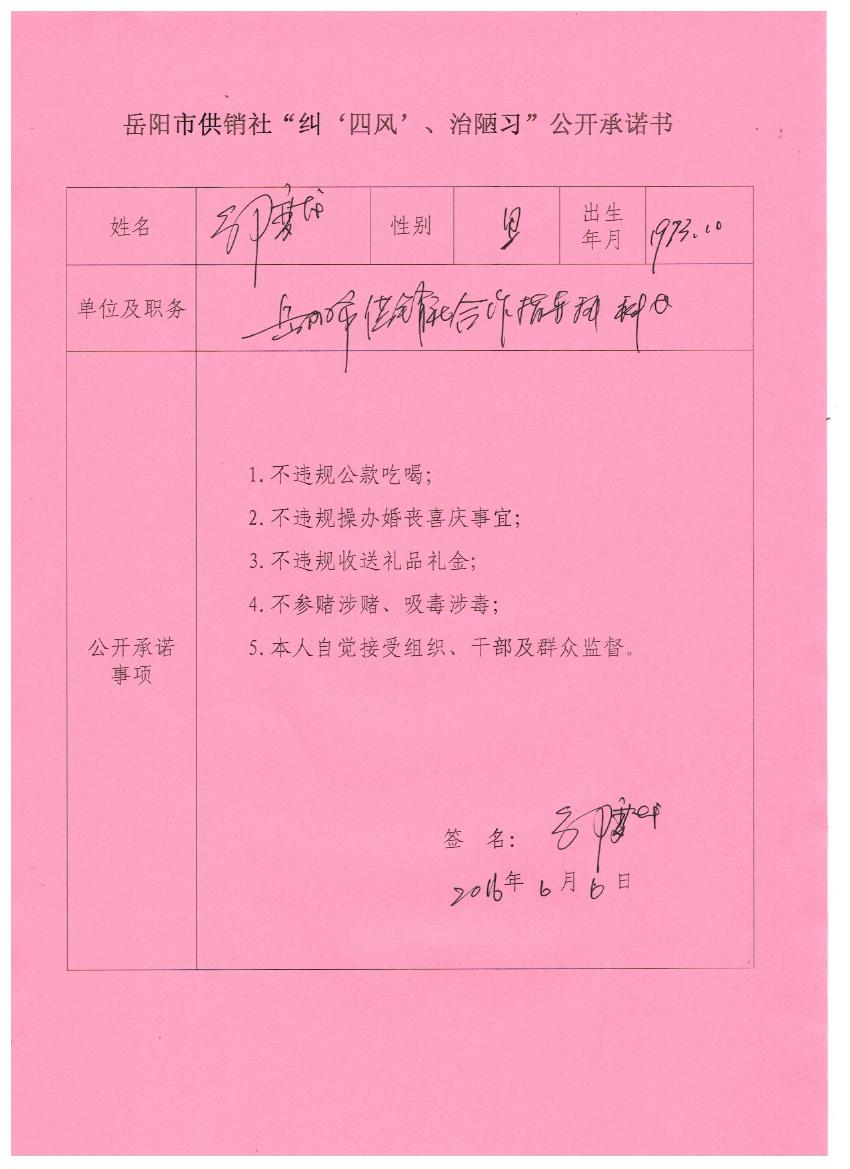 岳阳市供销社“纠‘四风’、治陋习”公开承诺书
姓名 性别 男 出生年月 1973.10
单位及职务 岳阳市供销社合作指导科 科长
公开承诺事项
1.不违规公款吃喝;
2.不违规操办婚丧喜庆事宜;
3.不违规收送礼品礼金;
4.不参赌涉赌、吸毒涉毒;
5.本人自觉接受组织、干部及群众监督。
签 名:
2016年 6月 6日